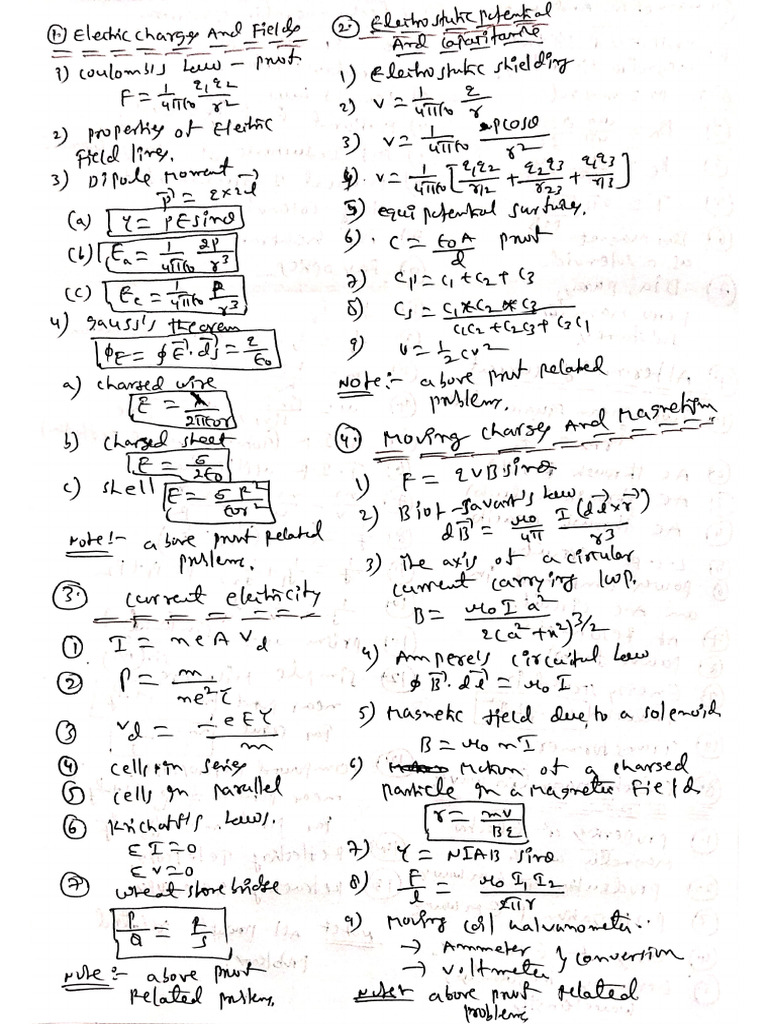 1. Electric charges And Fields
1) coulomb's Law – proof.
F = 1/4πε₀ q₁q₂/r²
2) properties of Electric
Field lines.
3) Dipole Moment →
p⃗ = q×2l
(a) τ = pE sinθ
(b) Eₐ = 1/4πε₀ 2p/r³
(c) Eₑ = 1/4πε₀ p/r³
4) gauss's theorem
ϕE = ∮E⃗.ds⃗ = q/ε₀
a) charged wire
E = λ/2πε₀r
b) charged sheet
E = σ/2ε₀
c) shell E = σR²/ε₀r²
Note:- above proof related
problems.
3. current electricity
1 I = neAVd
2 ρ = m/ne²τ
3 vd = -eEτ/m
4 cells in series
5 cells in parallel
6 Krichoff's Laws.
ΣI=0
ΣV=0
7 wheat stone bridge
P/Q = R/S
Note:- above proof
Related problems.
2. Electrostatic potential
And Capacitance
1) Electrostatic shielding
2) V = 1/4πε₀ q/r
3) V = 1/4πε₀ pcosθ/r²
4). V = 1/4πε₀ [q₁q₂/r₁₂ + q₂q₃/r₂₃ + q₁q₃/r₁₃]
5) equipotential surfaces.
6). C = ε₀A/d proof
7) Cp = C₁ + C₂ + C₃
8) Cs = C₁*C₂*C₃/C₁C₂ + C₂C₃ + C₃C₁
9) U = 1/2 CV²
Note:- above proof related
problems.
4. Moving charges And Magnetism
1) F = qVBsinθ.
2) Biot-Savart's Law
dB⃗ = μ₀/4π I(dl⃗×r⃗)/r³
3) The axis of a circular
current carrying loop.
B = μ₀Ia²/2(a²+x²)^3/2
4) Ampere's circuital Law
∮B⃗.dl⃗ = μ₀I..
5) Magnetic field due to a solenoid
B = μ₀nI
6) Motion of a charged
particle in a Magnetic Field
r = mv/Bq
7) τ = NIAB sinθ
8) F/l = μ₀I₁I₂/2πr
9) Moving coil Galvanometer..
→ Ammeter } conversion
→ Voltmeter
Note:- above proof related
problems